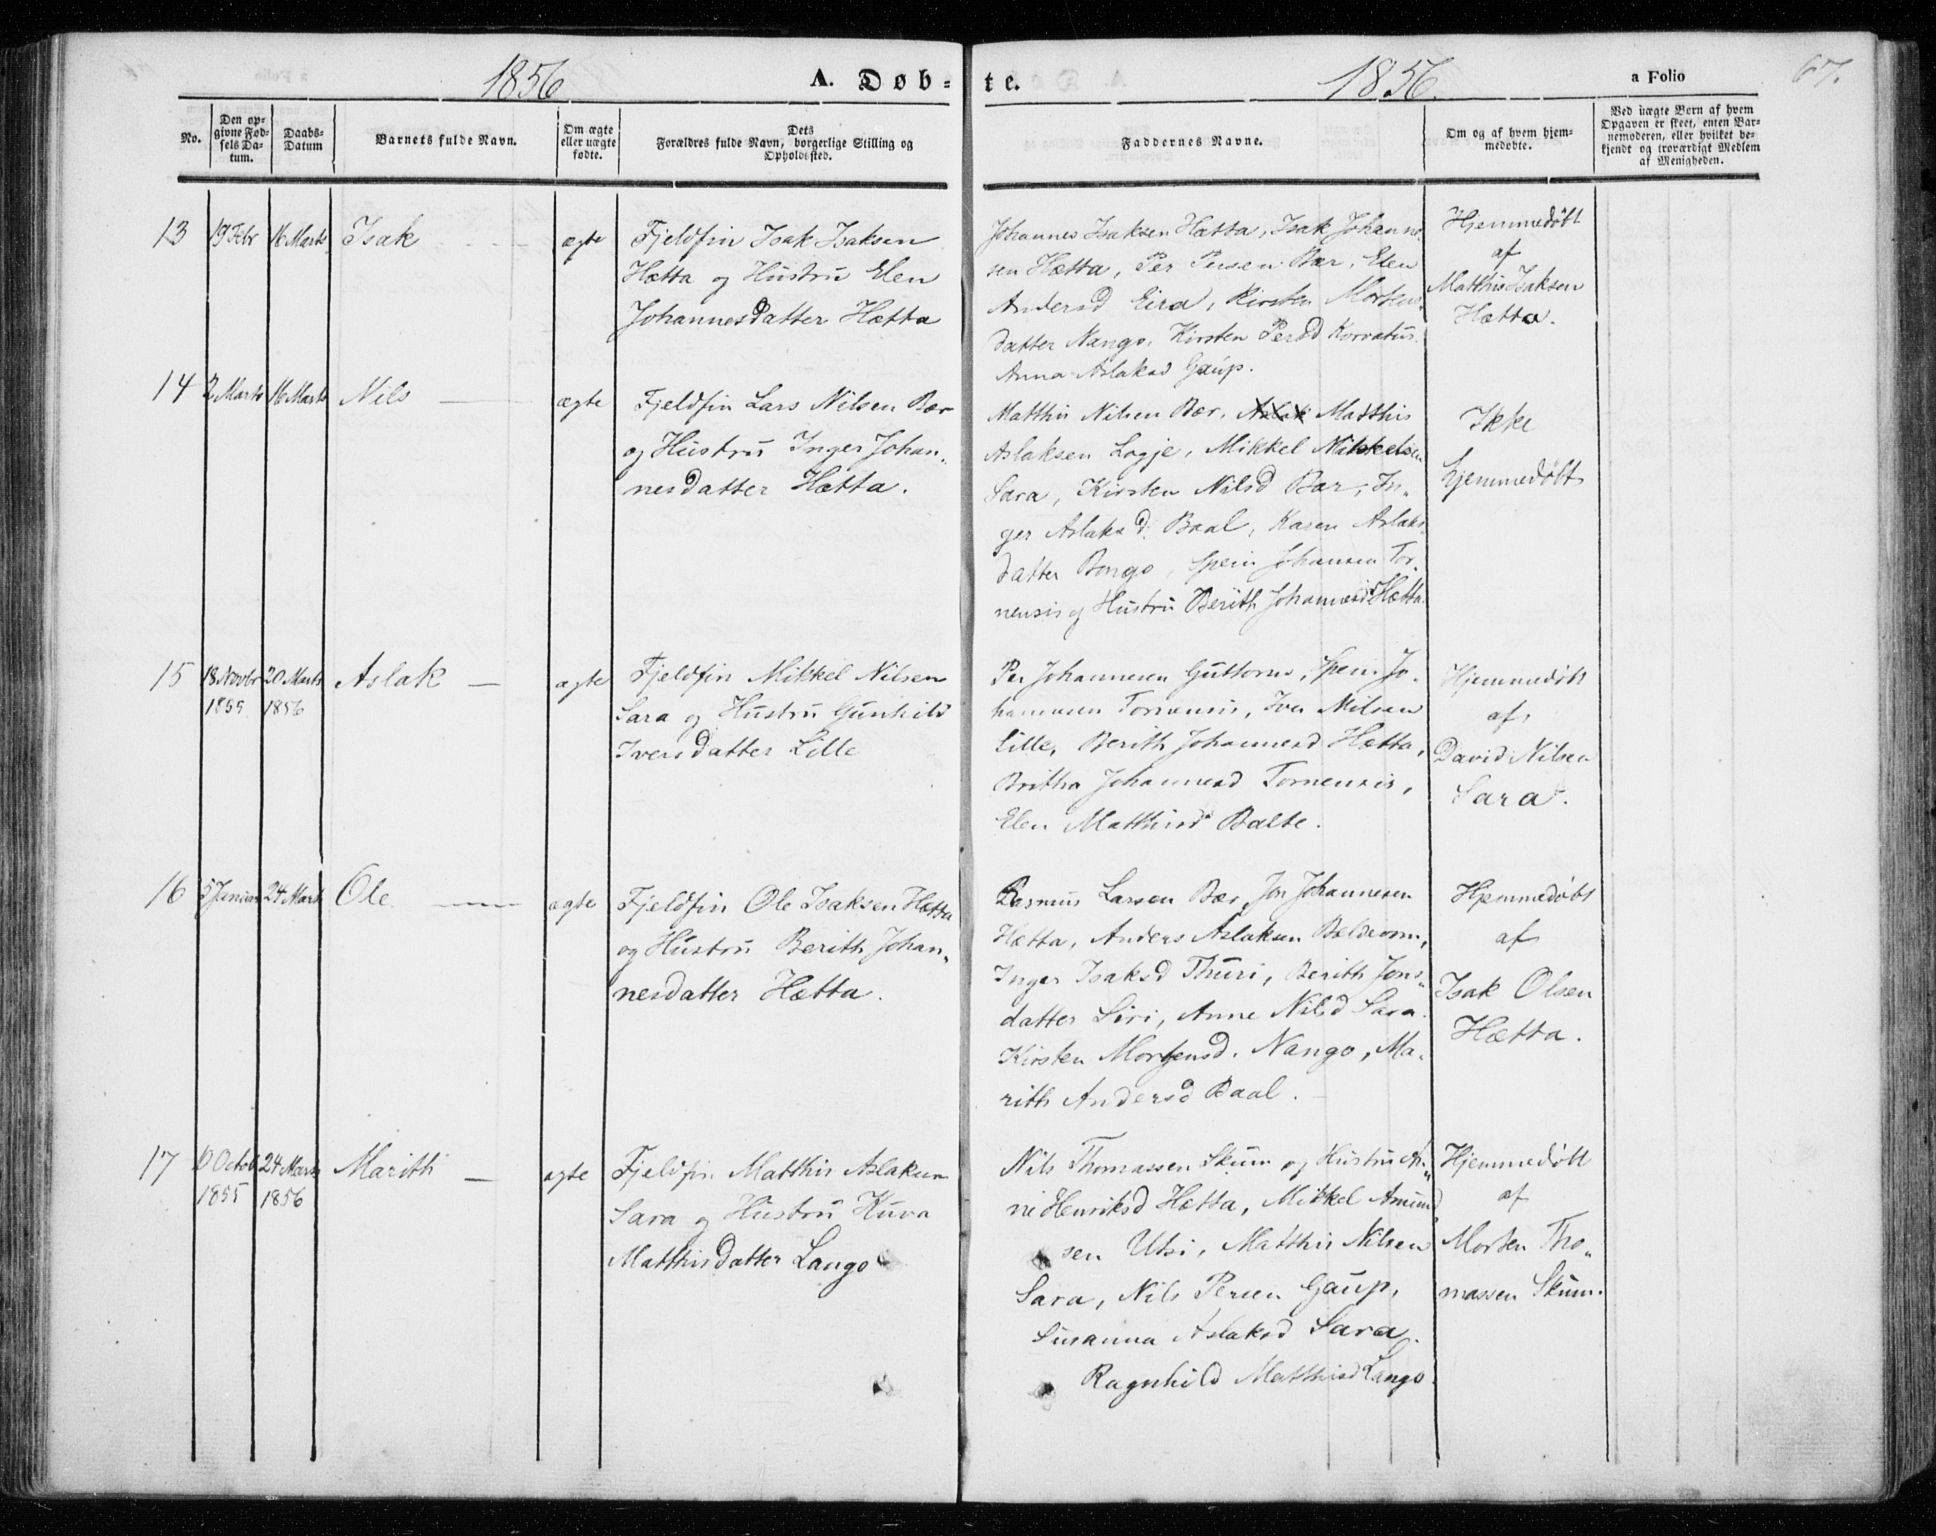 1856 A. Døb-
te. 1856. a Folio 67.
No.
Den op-
givne Fød-
sels Da-
tum.
Daabs-
Datum
Barnets fulde Navn.
Om ægte
eller uægte
fødte.
Dets
Forældres fulde Navn, borgerlige Stilling og
Opholdssted.
Faddernes Navne.
Om og af hvem hjem-
medøbte.
Ved uægte Børn af hvem
Opgaven er skeet, enten Bar-
nemoderen, eller hvilket be-
kjendt og troværdigt Medlem
af Menigheden.
13 19 Febr 16 Marts Isak ægte
Fjeldfin Isak Isaksen
Hætta og Hustru Elen
Johannesdatter Hætta
Johannes Isaksen Hætta, Isak Johannes-
sen Hætta, Per Persen Bær, Elen
Andersd Eira, Kirsten Mortens-
datter Nango, Kirsten Persd Korvatus.
Anna Aslaksd Gaup.
Hjemmedøbt
af
Matthis Isaksen
Hætta.
14 2 Marts 16 Marts Nils ægte
Fjeldfin Lars Nilsen Bær
og Hustru Inger Johan-
nesdatter Hætta.
Matthis Nilsen Bær, Aslak Matthis
Aslaksen Logje, Mikkel Mikkelsen
Sara, Kirsten Nilsd Bær, In-
ger Aslaksd. Baal, Karen Aslaks
datter Bongo, Spein Johansen Tor-
nensis og Hustru Berith Johannesd Hætta.
Ikke
hjemmedøbt
15 18 Novbr 20 Marts Aslak ægte
1855 1856
Fjeldfin Mikkel Nilsen
Sara og Hustru Gunhild
Iversdatter Lille
Per Johannesen Guttorm, Spein Jo-
hannesen Tornensis, Iver Nilsen
Lille, Berith Johannesd Hætta,
Britha Johannesd Tornensis,
Elen Matthisd Balte.
Hjemmedøbt
af
David Nilsen
Sara.
16 5 Januar 24 Marts Ole ægte
Fjeldfin Ole Isaksen Hætta
og Hustru Berith Johan-
nesdatter Hætta.
Rasmus Larsen Bær, Jon Johannesen
Hætta, Anders Aslaksen Baldevom,
Inger Isaksd Thuri, Berith Jons-
datter Siri, Anne Nilsd Sara.
Kirsten Mortensd. Nango, Ma-
rith Andersd Baal.
Hjemmedøbt
af
Isak Olsen
Hætta.
17 10 Octob 24 Marts Marith ægte
1855 1856
Fjeldfin Matthis Aslaksen
Sara og Hustru Kuva
Matthisdatter Lango
Nils Thomassen Skum og Hustru An-
ne Henriksd Hætta, Mikkel Amund
sen Utsi, Matthis Nilsen
Sara, Nils Persen Gaup,
Susanna Aslaksd Sara.
Ragnhild Matthisd Lango.
Hjemmedøbt
af
Morten Tho-
massen Skum.